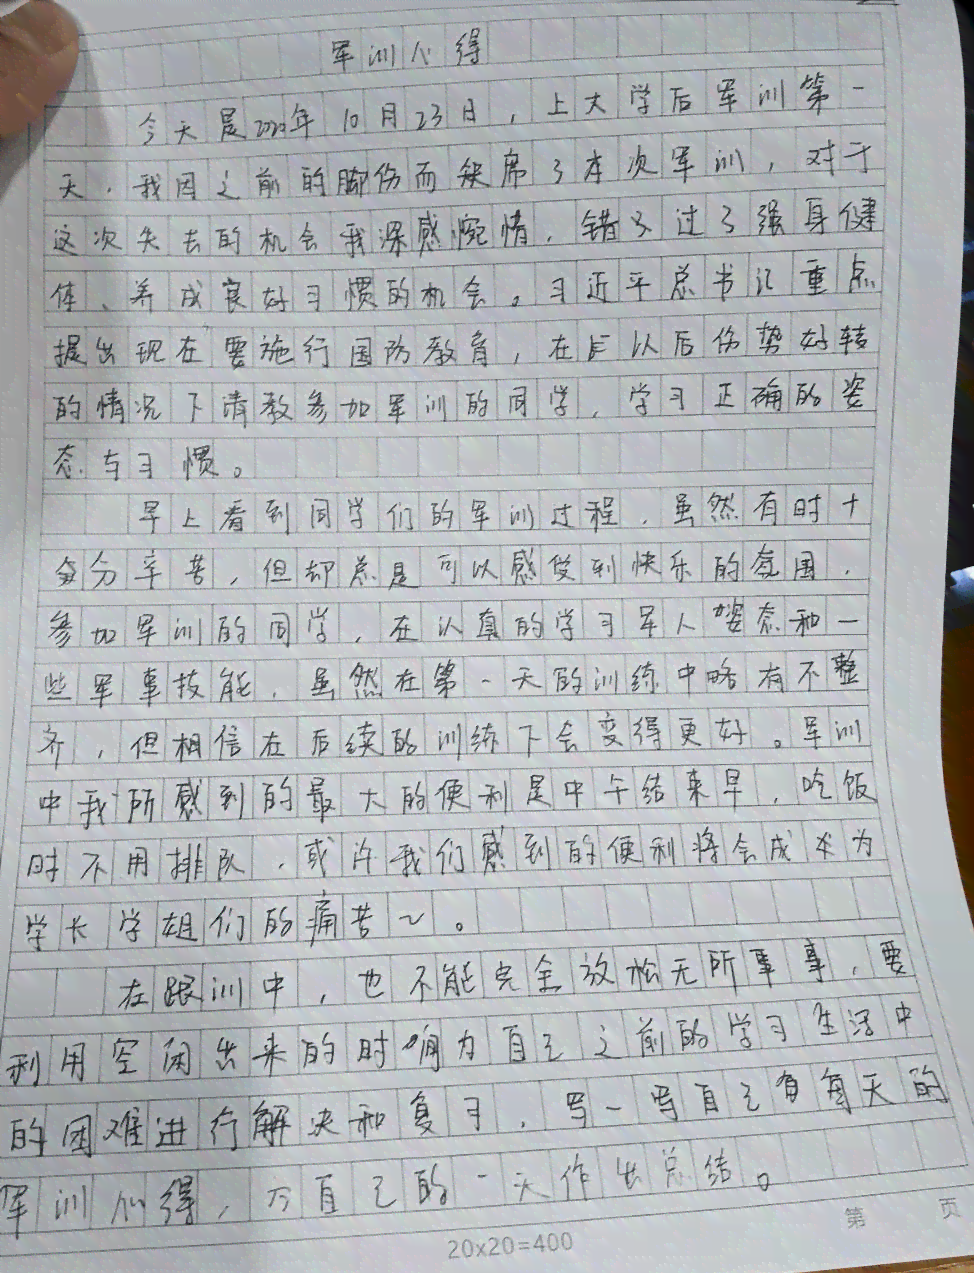 军训心得
今天是2022年10月23日，上大学后军训第一
天，我因之前的脚伤而缺席了本次军训，对于
这次失去的机会我深感惋惜，错过了强身健
体、养成良好习惯的机会。习近平总书记重点
提出现在要施行国防教育，在以后伤势好转
的情况下请教参加军训的同学，学习正确的姿
态与习惯。
早上看到同学们的军训过程，虽然有时十
分辛苦，但却总是可以感受到快乐的氛围，
参加军训的同学，在认真的学习军人姿态和一
些军事技能，虽然在第一天的训练中略有不整
齐，但相信在后续的训练下会变得更好。军训
中我所感到的最大的便利是中午结束早，吃饭
时不用排队，或许我们感到的便利将会成为
学长学姐们的痛苦～。
在跟训中，也不能完全放松无所事事，要
利用空闲出来的时间为自己之前的学习生活中
的困难进行解决和复习，写一写自己每天的
军训心得，为自己的一天作出总结。
第 页
20x20=400